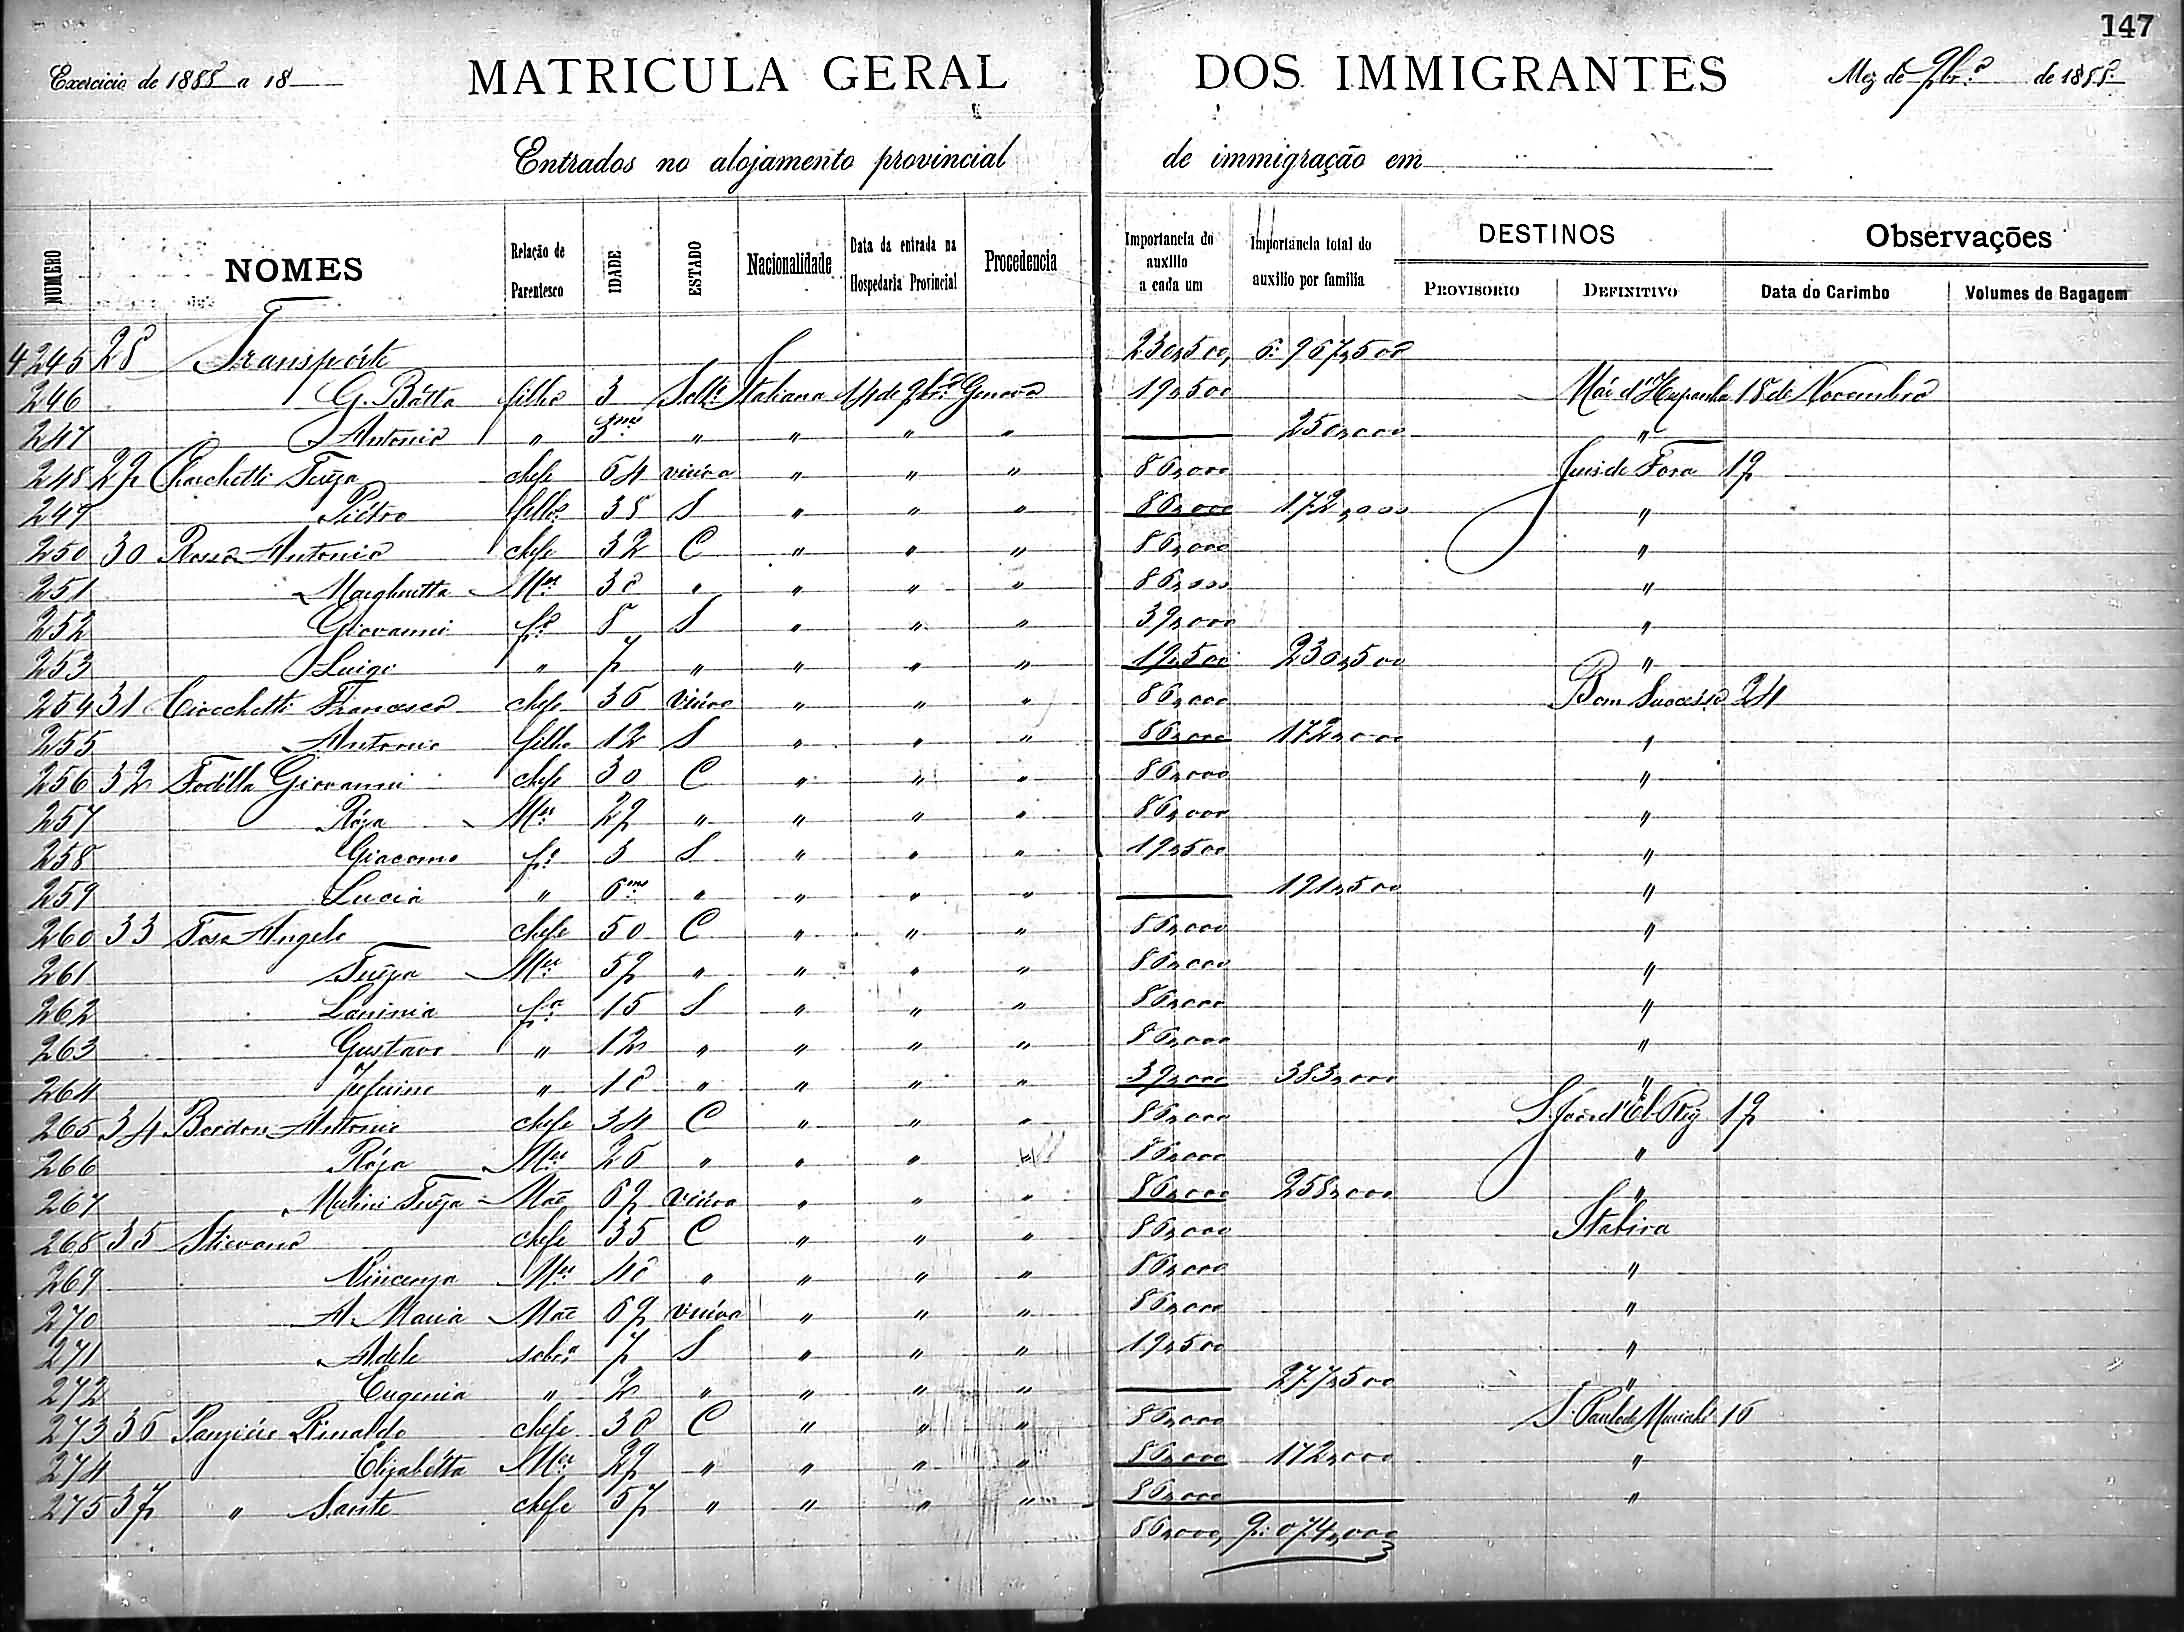 147
Exercicio de 1888 a 18
MATRICULA GERAL DOS IMMIGRANTES
Mez de 9br.º de 1888
Entrados no alojamento provincial de immigração em
NUMERO NOMES Relação de Parentesco IDADE ESTADO Nacionalidade Data da entrada na Hospedaria Provincial Procedencia Importancia do auxilio a cada um Importancia total do auxilio por familia DESTINOS PROVISORIO DEFINITIVO Observações Data do Carimbo Volumes de Bagagem
4245 28 Transpórte 230,500, 6:967,500
246 G. Batta filho 3 Italiana 14 de 9br.º Genova 19,500 18 de Novembro
247 Antonio " " " " " 250,000 "
248 29 chefe 64 viúva " " " 86,000 Juis de Fora 19
249 Piétro filho 38 S " " " 86,000 172,000 "
250 30 Antonio chefe 32 C " " " 86,000 "
251 Margheritta Mer 30 " " " " 86,000 "
252 Giovanni fº 8 S " " " 39,000 "
253 Luigi " 7 " " " " 19,500 230,500 "
254 31 Francesco chefe 36 viúvo " " " 86,000 Bom Successo 24
255 Antonio filho 12 S " " " 86,000 172,000 "
256 32 Giovanni chefe 30 C " " " 86,000 "
257 Róza Mer 29 " " " " 86,000 "
258 Giacomo fº 3 S " " " 19,500 "
259 Lucia " 6 ms " " " " 191,500 "
260 33 Angelo chefe 50 C " " " 86,000 "
261 Mer 59 " " " " 86,000 "
262 Lavinia fª 15 S " " " 86,000 "
263 Gustavo " 12 " " " " 86,000 "
264 " 10 " " " " 39,000 383,000 "
265 34 Bordon Antonio chefe 34 C " " " 86,000 S. João d'El-Rey 19
266 Róza Mer 26 " " " " 86,000 "
267 Mãe 69 viúva " " " 86,000 258,000 "
268 35 Stievano chefe 35 C " " " 86,000 Itabira
269 Vincenza Mer 40 " " " " 86,000 "
270 A. Maria Mãe 69 viúva " " " 86,000 "
271 Adele sobª 7 S " " " 19,500 "
272 Eugenia " 2 " " " " 277,500 "
273 36 Rinaldo chefe 30 C " " " 86,000 S. Paulo de Muriahé 16
274 Elizabétta Mer 29 " " " " 86,000 172,000 "
275 37 " Sante chefe 57 " " " " 86,000 "
86,000, 9:074,000